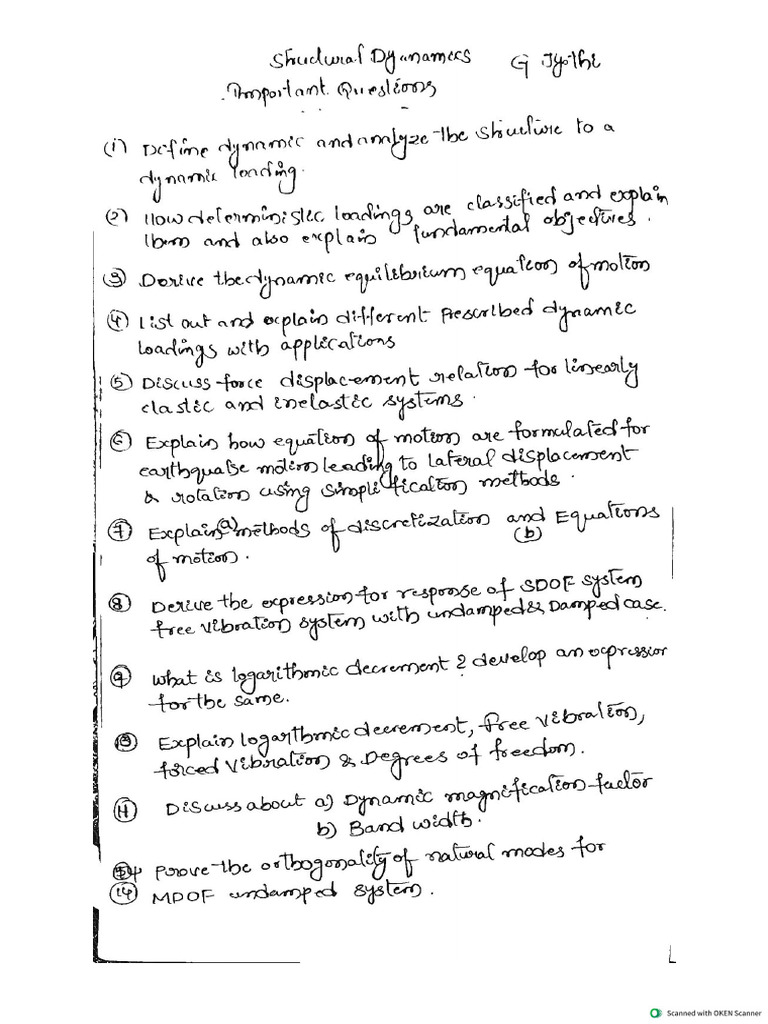 Structural Dynamics G Jyothi
Important Questions
(1) Define dynamic and analyze the structure to a
dynamic loading.
(2) How deterministic loadings are classified and explain
them and also explain fundamental objectives.
(3) Derive the dynamic equilibrium equation of motion
(4) List out and explain different prescribed dynamic
loadings with applications
(5) Discuss force displacement relation for linearly
elastic and inelastic systems.
(6) Explain how equation of motion are formulated for
earthquake motion leading to lateral displacement
& rotation using simplification methods.
(7) Explain (a) methods of discretization and (b) Equations
of motion.
(8) Derive the expression for response of SDOF system
free vibration system with undamped & Damped case.
(9) What is logarithmic decrement? develop an expression
for the same.
Explain logarthmic decrement, free vibration,
forced vibration & Degrees of freedom.
(11) Discuss about a) Dynamic magnification factor
b) Band width.
Prove the orthogonality of natural modes for
(14) MDOF undamped system.
Scanned with OKEN Scanner